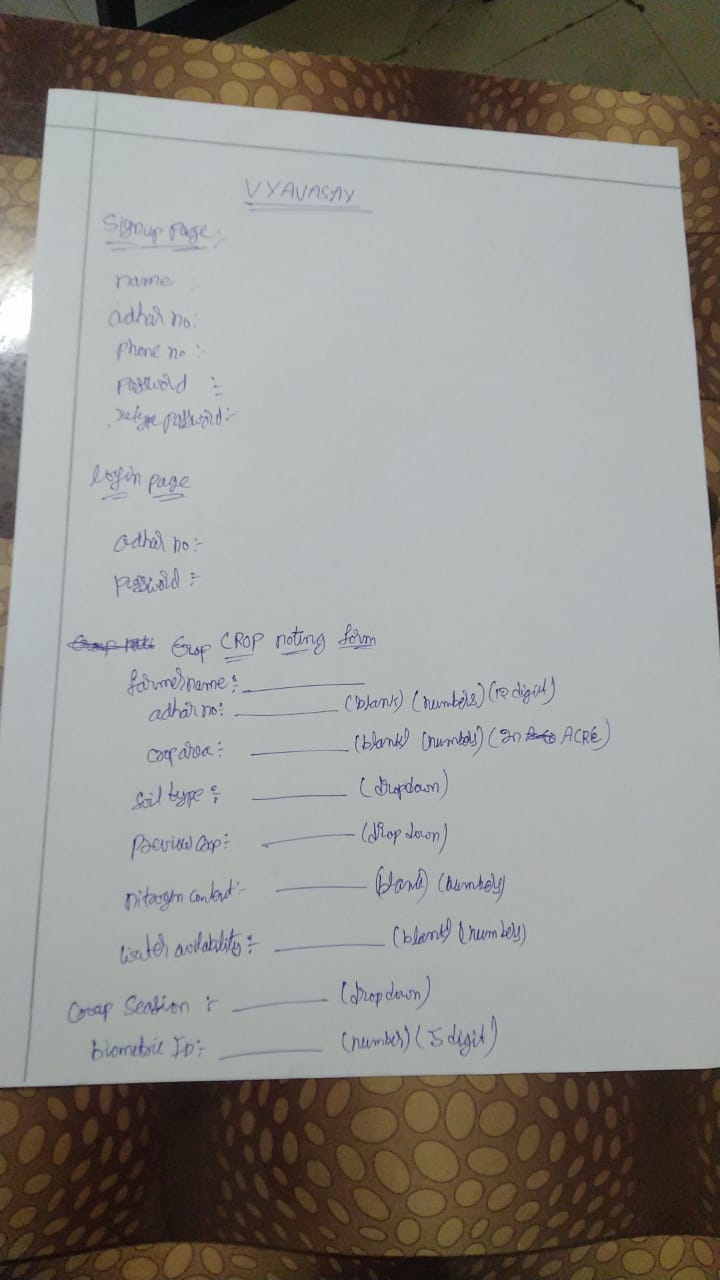 VYAVASAY
Signup page:-
name :
adhar no:
Phone no :-
Password :-
Retype password:-
login page
adhar no:-
password :-
Crop CROP noting form
farmer name:
adhar no: (blank) (numbers) (12 digit)
crop area: (blank) (numbers) (In ACRE)
soil type: (dropdown)
Previous crop:- (drop down)
nitrogen content:- (blank) (numbers)
water availability:- (blank) (numbers)
Crop Season :- (dropdown)
biometric ID:- (number) (5 digit)